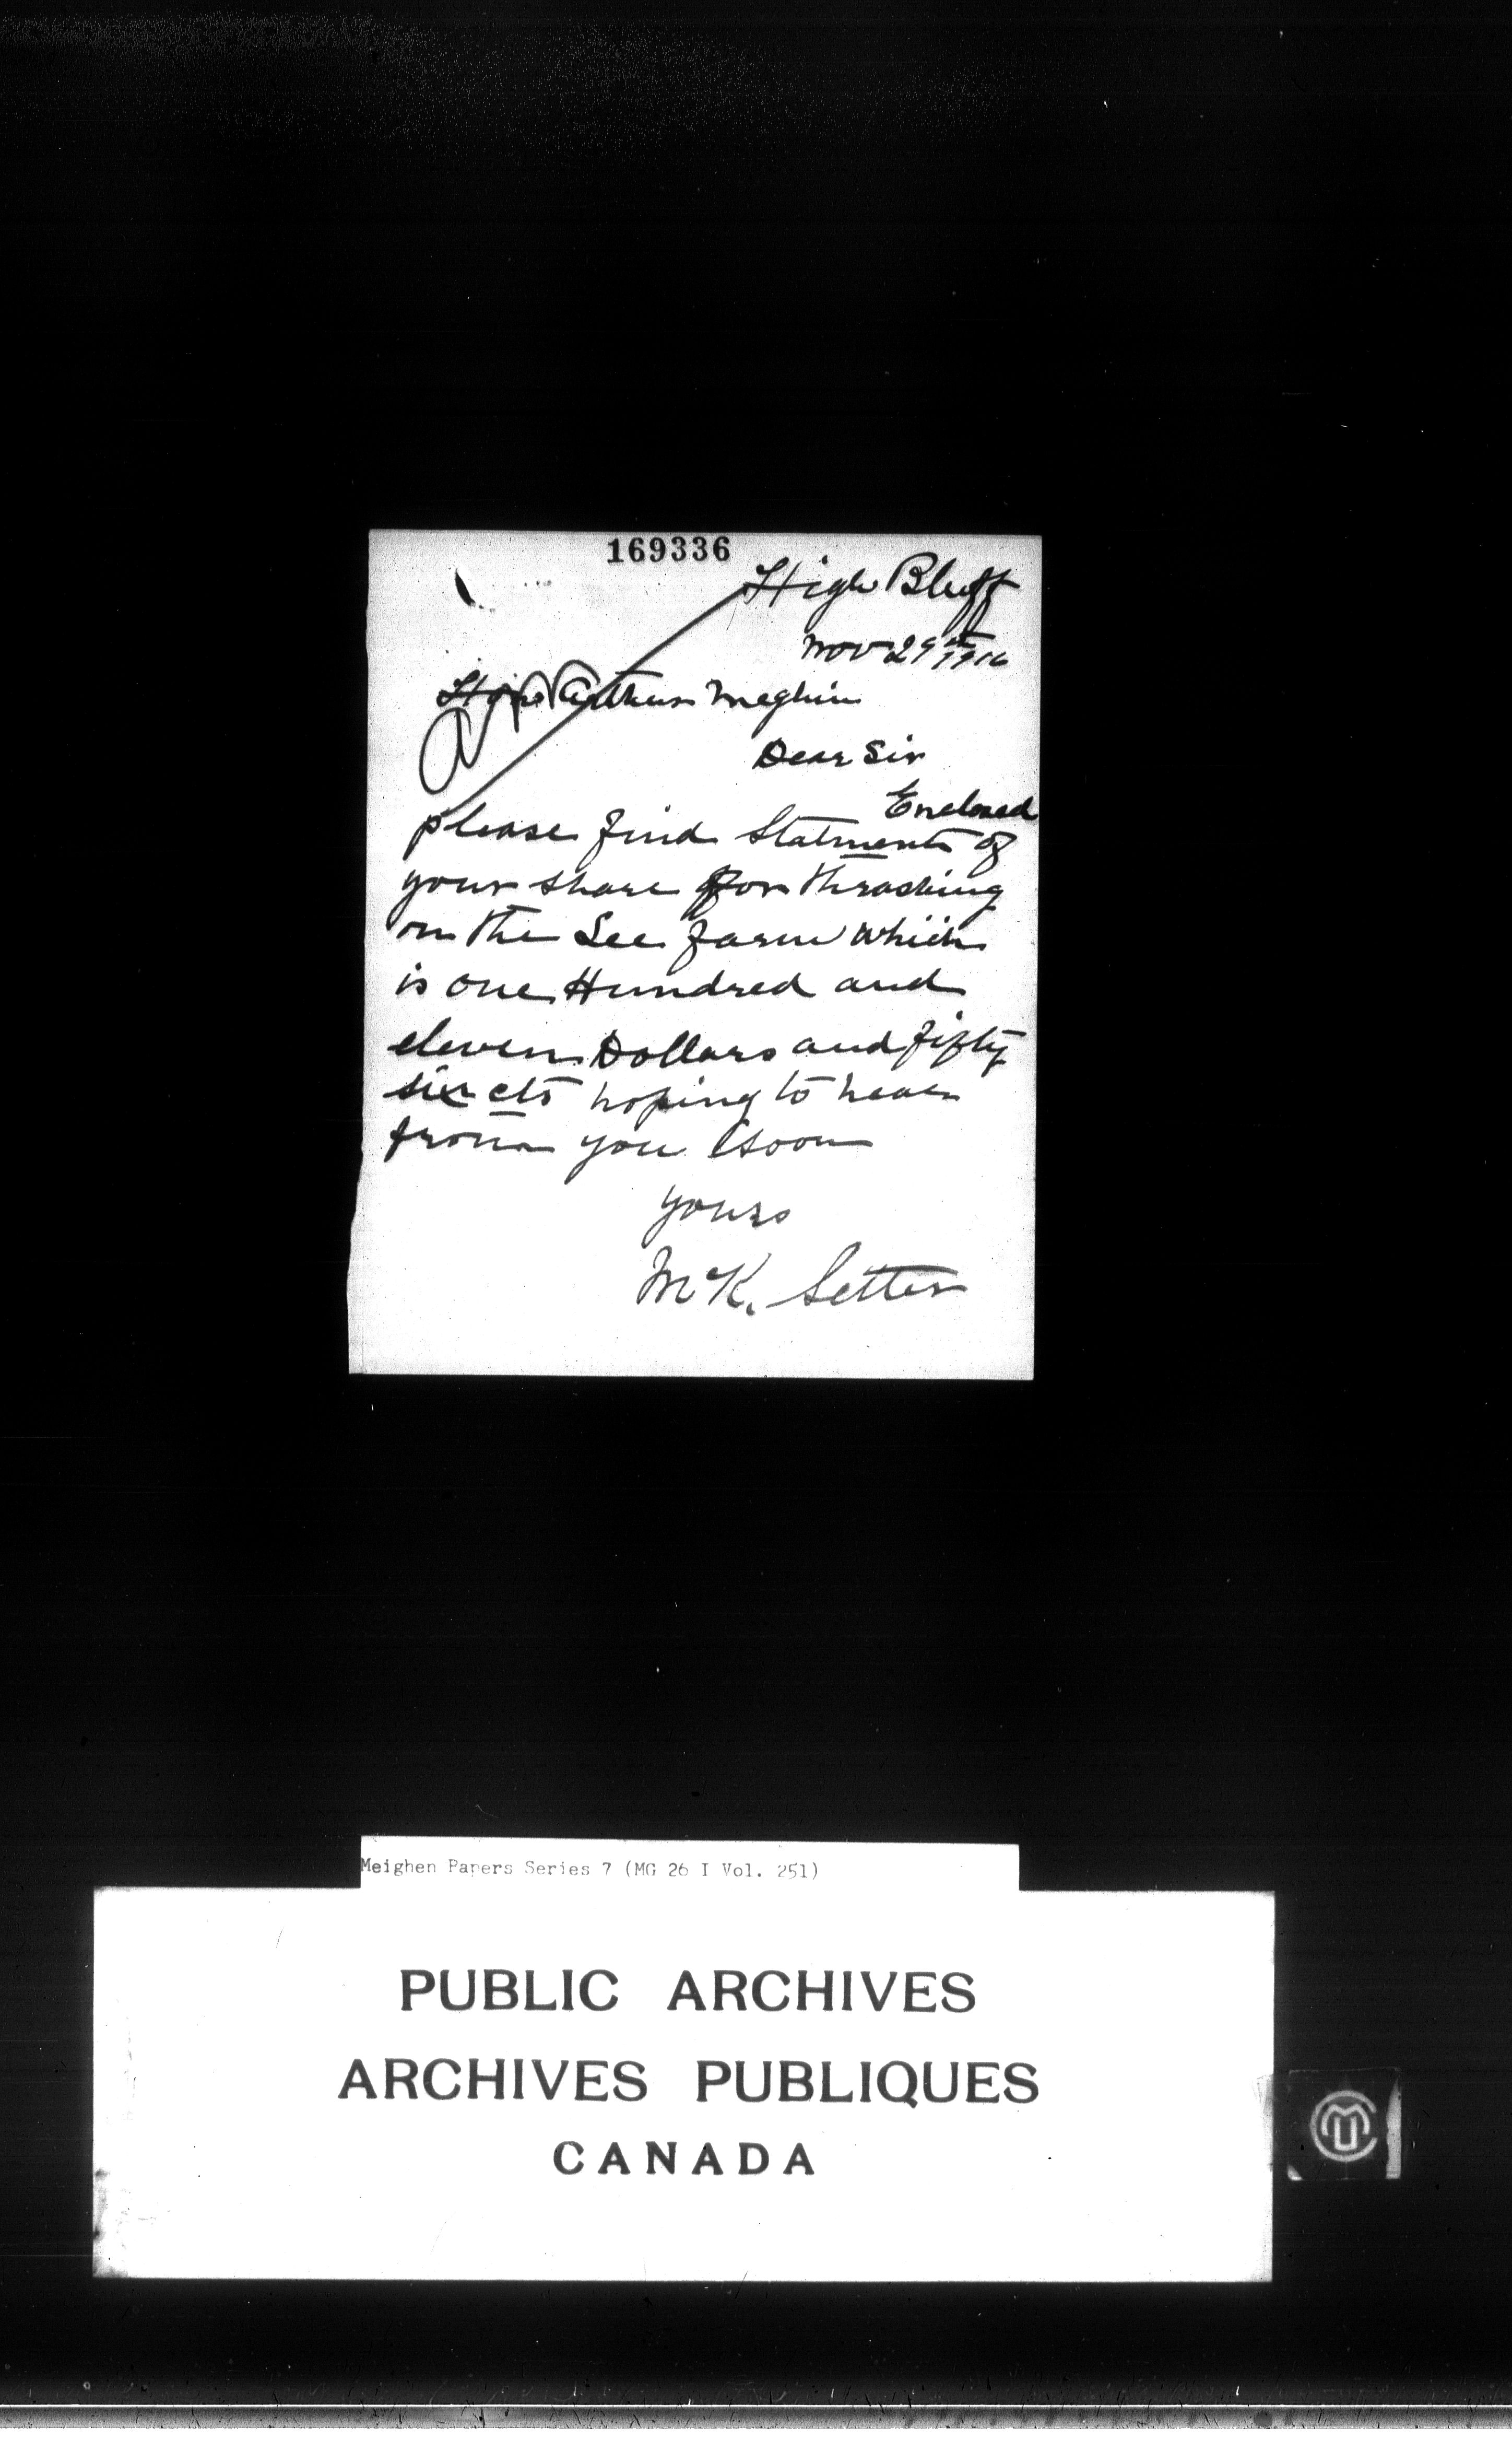 169336
High Bluff
Nov 29th 1916
Hon Arthur Meghin
Dear Sir
Enclosed
please find Statments of
your share for thrashing
on the Lee farm which
is one Hundred and
eleven Dollars and fifty
six cts hoping to hear
from you soon
yours
McK. Setter
Meighen Papers Series 7 (MG 26 I Vol. 251)
PUBLIC ARCHIVES
ARCHIVES PUBLIQUES
CANADA